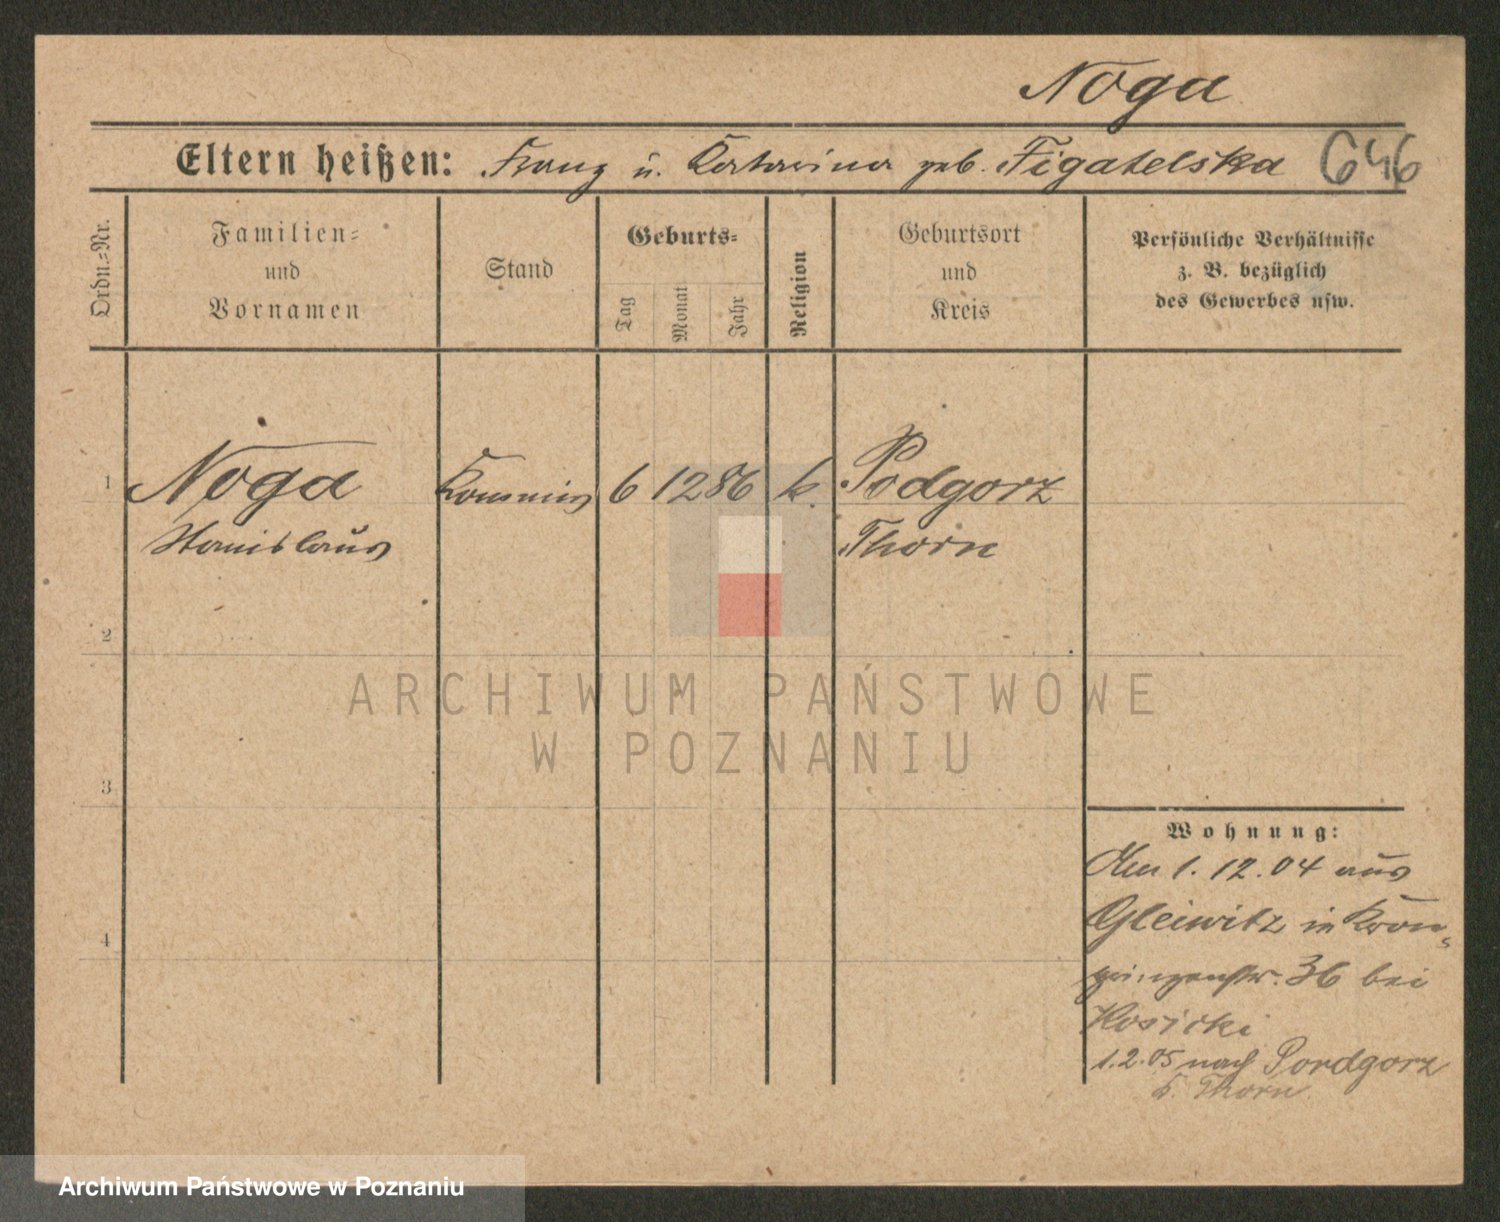 Noga
Eltern heißen: Franz u. Katarina geb. Figatelska 646
Ordn.-Nr.
Familien=
und
Vornamen
Stand
Geburts=
Tag
Monat
Jahr
Religion
Geburtsort
und
Kreis
Persönliche Verhältnisse
z. B. bezüglich
des Gewerbes usw.
1 Noga 6 12 86 k. Podgorz
Stanislaus Thorn
2
3
4
Wohnung:
Am 1. 12. 04 aus
Gleiwitz in Kron-
prinzenstr. 36 bei
Kosicki
1. 2. 05 nach Pordgorz
b. Thorn.
ARCHIWUM PAŃSTWOWE
W POZNANIU
Archiwum Państwowe w Poznaniu